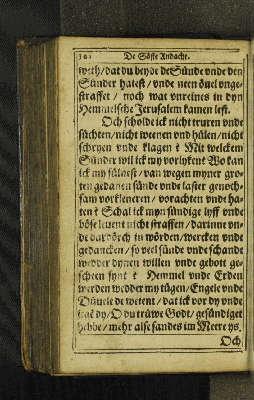 De Söste Andacht.
weth / dat du beyde de Sünde vnde den
Sünder hatest / vnde neen övel vnge-
straffet / noch wat vnreines in dyn
Hemmelsche Jerusalem kamen lest.
Och scholde ick nicht truren vnde
süchten / nicht weenen vnd hülen / nicht
schryen vnde klagen? Mit welckem
Sünder wil ick my vorlyken? Wo kan
ick my sülvest / van wegen myner gro-
ten gedanen sünde vnde laster genoch-
sam vorkleneren / vorachten vnde ha-
ten? Schal ick myn sündige lyff vnde
böse levent nicht straffen / darinne vn-
de dardörch in wörden / wercken vnde
gedancken / so veel sünde vnde schande
wedder dynen willen vnde gebott ge-
scheen synt? Hemmel vnde Erden
werden wedder my tügen / Engele vnde
Düvele de wetent / dat ick vor dy vnde
dy / O du trüwe Godt / gesündiget
hebbe / mehr alse sandes im Meere ys.
Och